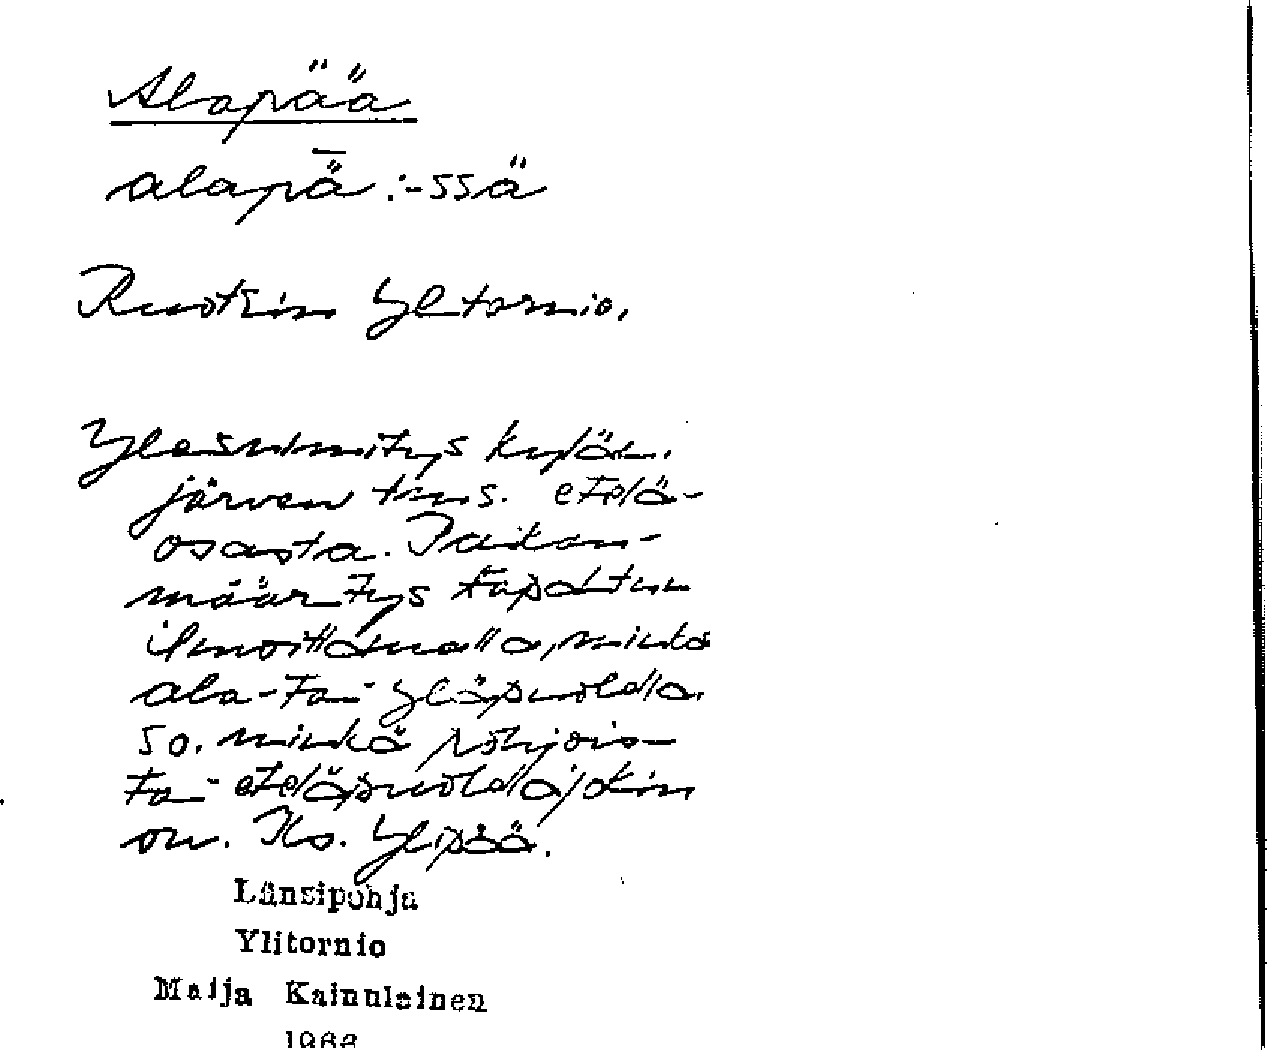 Alapää
alapǟ :-ssä
Ruotsin Ylitornio.
Ylesnimitys kylän.
järven tms. etelä-
osasta. Paikan-
määritys tapahtuu
ilmoittamalla, minkä
ala- tai yläpuolella.
so. minkä pohjois-
tai eteläpuolella jokin
on. Ks. Ylipää.
Länsipohja
Ylitornio
Maija Kainulainen